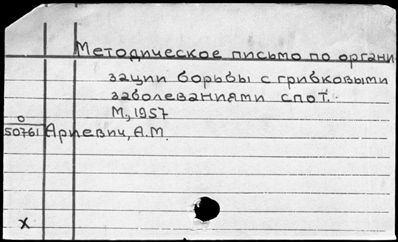 Методическое письмо по органи
зации борьбы с грибковыми
заболеваниями стоп.
М., 1957
О
50761 Ариевич, А.М.
х